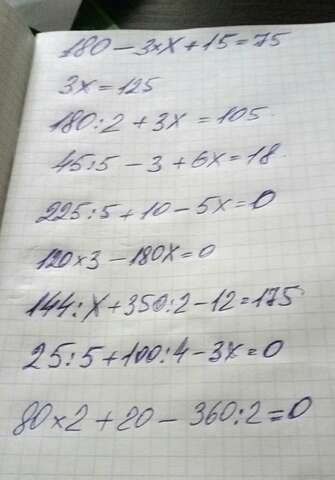 180 - 3×X + 15 = 75
3X = 125
180 : 2 + 3X = 105
45 : 5 - 3 + 6X = 18
225 : 5 + 10 - 5X = 0
120 × 3 - 180X = 0
144 : X + 350 : 2 - 12 = 175
25 : 5 + 100 : 4 - 3X = 0
80 × 2 + 20 - 360 : 2 = 0